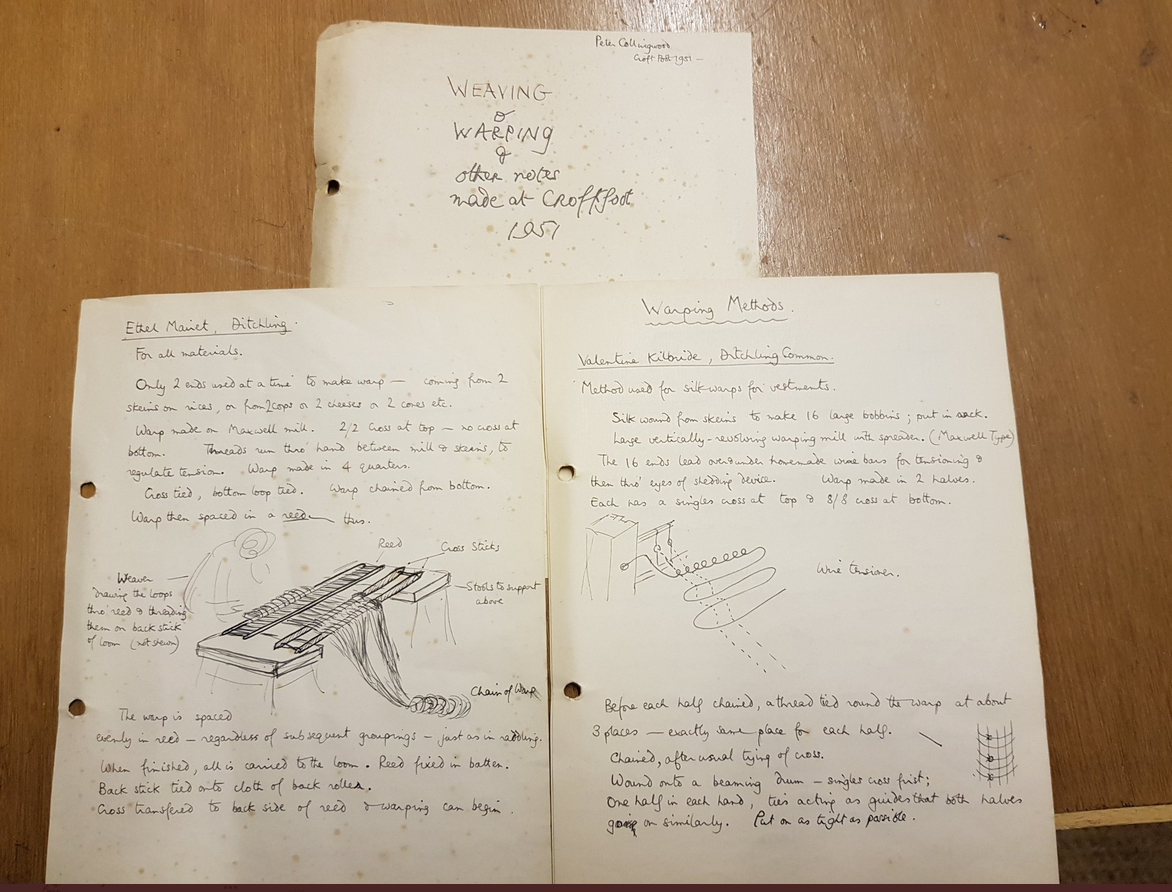 Peter Collingwood
Croft Foot 1951 —
WEAVING
&
WARPING
&
other notes
made at Croftfoot
1951
Ethel Mairet, Ditchling.
For all materials.
Only 2 ends used at a time to make warp — coming from 2
skeins on rices, or from 2 cops or 2 cheeses or 2 cones etc.
Warp made on Maxwell mill. 2/2 cross at top — no cross at
bottom. Threads run thro' hand between mill & skeins, to
regulate tension. Warp made in 4 quarters.
Cross tied, bottom loop tied. Warp chained from bottom.
Warp then spaced in a reed thus.
Reed
Cross Sticks
Weaver
drawing the loops
thro' reed & threading
them on back stick
of loom (not shewn)
Stools to support
above
Chain of Warp
The warp is spaced
evenly in reed — regardless of subsequent groupings — just as in raddling.
When finished, all is carried to the loom. Reed fixed in batten.
Back stick tied onto cloth of back roller.
Cross transfered to back side of reed & warping can begin.
Warping Methods.
Valentine Kilbride, Ditchling Common.
Method used for silk-warps for vestments.
Silk wound from skeins to make 16 large bobbins; put in rack.
Large vertically-revolving warping mill with spreader. (Maxwell Type)
The 16 ends lead over & under homemade wire bars for tensioning &
then thro' eyes of shedding device. Warp made in 2 halves.
Each has a singles cross at top & 8/8 cross at bottom.
Wire tensioner.
Before each half chained, a thread tied round the warp at about
3 places — exactly same place for each half.
Chained, after usual tying of cross.
Wound onto a beaming drum — singles cross first;
One half in each hand, ties acting as guides that both halves
going on similarly. Put on as tight as possible.